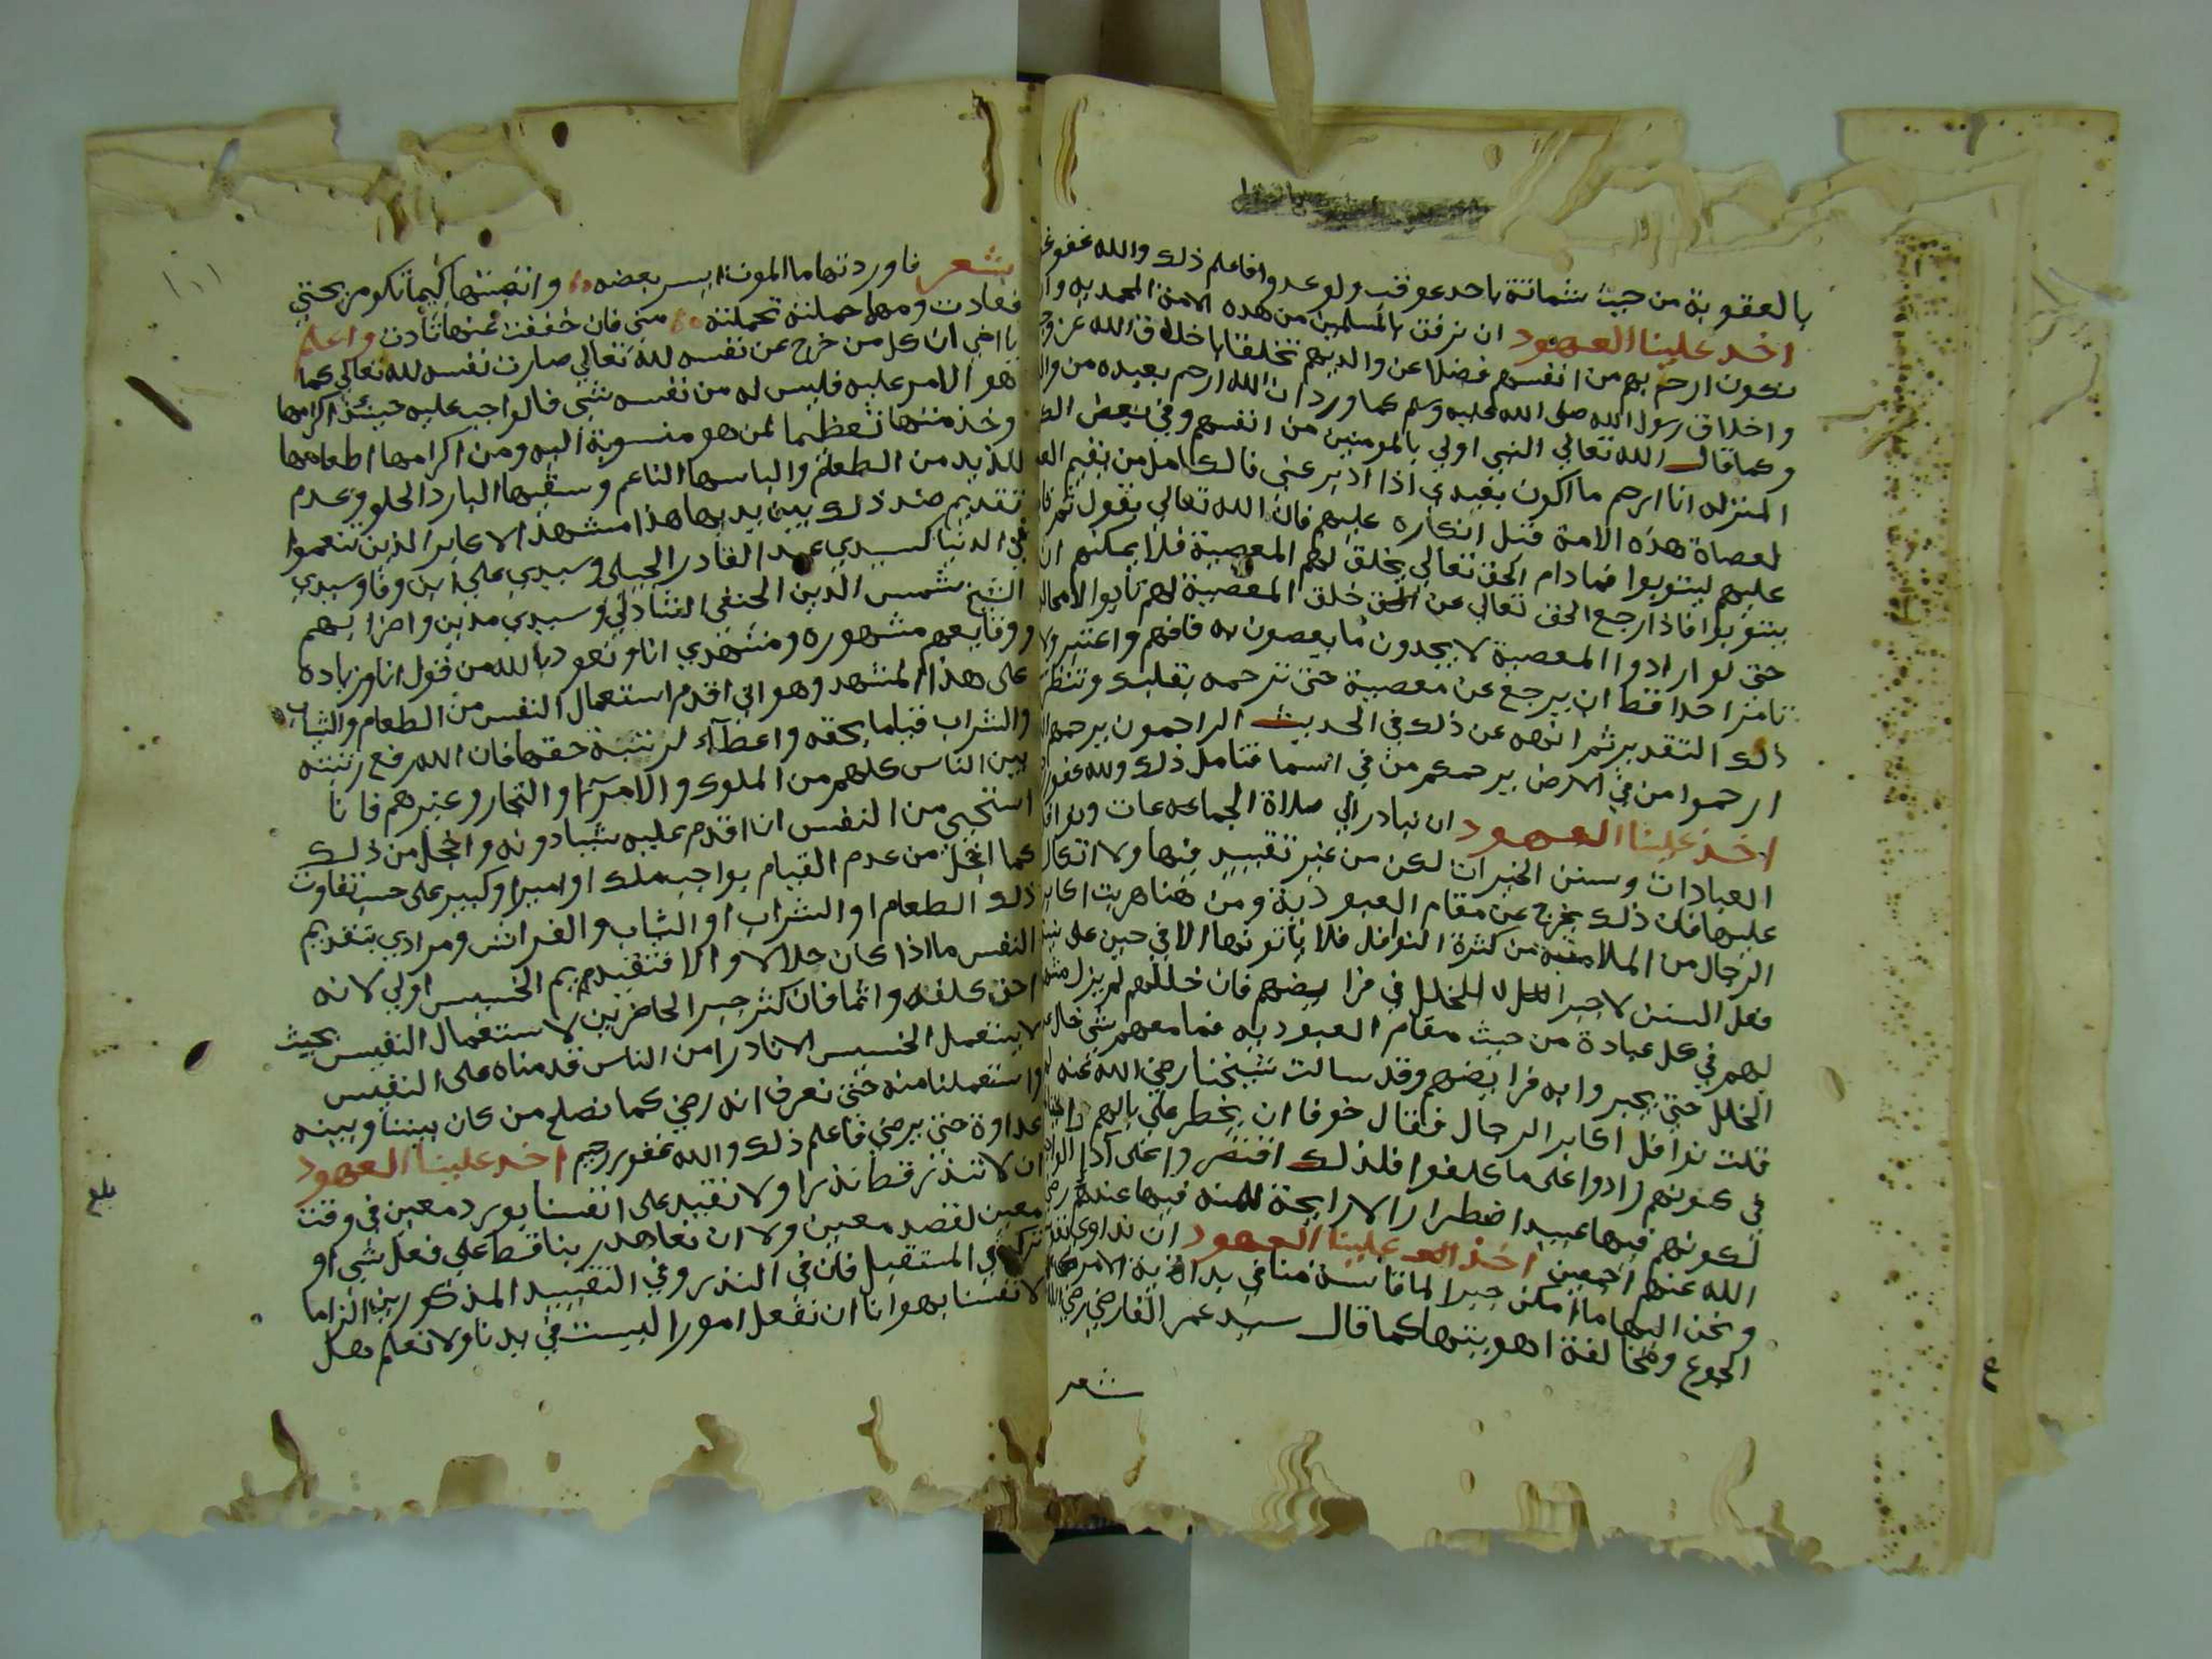 بالعقوبة من حيث شماتته باحد عوقب ولو عدوا فاعلم ذلك والله غفور
اخذ علينا العهود ان نرفق بالمسلمين من هذه الامة المحمديه و
نكون ارحم بهم من انفسهم فضلا عن والديهم تخلقا باخلاق الله عز و
واخلاق رسول الله صلى الله عليه وسلم كما ورد ان الله ارحم بعبده من
وكما قال الله تعالي النبي اولي بالمومنين من انفسهم وفي بعض
المنزله انا ارحم ما اكون بعبدي اذا ادبر عني فالكامل من يقيم
لعصاة هذه الامة قبل انكاره عليهم فان الله تعالي يقول
عليهم ليتوبوا فما دام الحق تعالي يخلق لهم المعصية فلا يمكنهم ان
يتوبوا فاذا رجع الحق تعالي عن خلق المعصية لهم تابوا لا محالة
حتى لو ارادوا المعصية لا يجدون ما يعصون به فافهم واعتبر ولا
تامر احدا قط ان يرجع عن معصية حتى ترحمه بقلبك وتنظر
ذلك التقدير ثم انهه عن ذلك في الحديث الراحمون يرحمهم
ارحموا من في الارض يرحمكم من في السما فتامل ذلك والله غفور
اخذ علينا العهود ان نبادر الي صلاة الجماعات ونوافل
العبادات وسنن الخيرات لكن من غير تقييد فيها ولا اتكال
عليها فان ذلك يخرج عن مقام العبودية ومن هنا هربت اكابر
الرجال من الملامتية من كثرة النوافل فلا ياتونها الا في حين علي
فعل السنن لا جبرا للخلل في فرايضهم فان خللهم لم يزل
لهم في كل عبادة من حيث مقام العبوديه فما معهم شي خال
الخلل حتى يجبروا به فرايضهم وقد سالت شيخنا رضي الله عنه
قلت نوافل اكابر الرجال فقال خوفا ان يخطر علي بالهم
في كونهم زادوا على ما كلفوا فلذلك اقتصروا على اداء
لكونهم فيها عبيدا اضطرارا لا رايحة للمنه فيها عندهم رضي
الله عنهم اجمعين اخذ علينا العهود ان نداوي
ونحن اليها ما امكن جبرا لما قاسته منا في بداية الامر
الجوع ومخالفة اهويتها كما قال سيد عمر الفارضي رضي الله
شعر
شعر فاوردتها ما الموت ايسر بعضه واتعبتها كيما تكون مريحتي
فعادت ومهما حملته تحملته مني فان خففت عنها تأدت واعلم
يا اخي ان كل من خرج عن نفسه لله تعالي صارت نفسه لله تعالي كما
هو الامر عليه فليس له من نفسه شي فالواجب عليه حينئذ اكرامها
وخدمتها تعظيما لمن هو منسوبة اليه ومن اكرامها اطعامها
للذيذ من الطعام والباسها الناعم وسقيها البارد الحلو وعدم
تقديم ضد ذلك بين يديها هذا مشهد الاكابر الذين تنعموا
في الدنيا كسيدي عبد القادر الجيلي وسيدي علي ابن وفا وسيدي
الشيخ شمس الدين الحنفي الشاذلي وسيدي مدين واضرابهم
ووقايعهم مشهوره ومشهدي انا ونعوذ بالله من قول انا زياده
على هذا المشهد وهو اني اقدم استعمال النفس من الطعام والثياب
والشراب قياما بحقه واعطاء لرتبته حقها فان الله رفع رتبته
بين الناس كلهم من الملوك والامراء والتجار وغيرهم فانا
استحيي من النفس ان اقدم عليه شيا دونه واخجل من ذلك
كما اخجل من عدم القيام بواجب ملك او امير او كبير على حسب تفاوت
ذلك الطعام او الشراب او الثياب والفراش ومرادي بتقديم
النفس ما اذا كان حلالا والا فتقديم الخسيس اولي لانه
اخف كلفه واثما فان كثر جبر الحاضرين لاستعمال النفيس بحيث
لا يستعمل الخسيس الا نادرا من الناس قدمناه على النفيس
واستعملنا منه حتى نعرف انه رضي كما نصلح من كان بيننا وبينه
عداوة حتى يرضي فاعلم ذلك والله غفور رحيم اخذ علينا العهود
ان لا ننذر قط نذرا ولا نقيد على انفسنا بورد معين في وقت
معين لقصد معين ولا ان نعاهد ربنا قط علي فعل شي او
تركه في المستقبل فان في النذر وفي التقييد المذكورين الزاما
لانفسنا بهوانا ان نفعل امورا ليست في يدنا ولا نعلم هل
بلغ